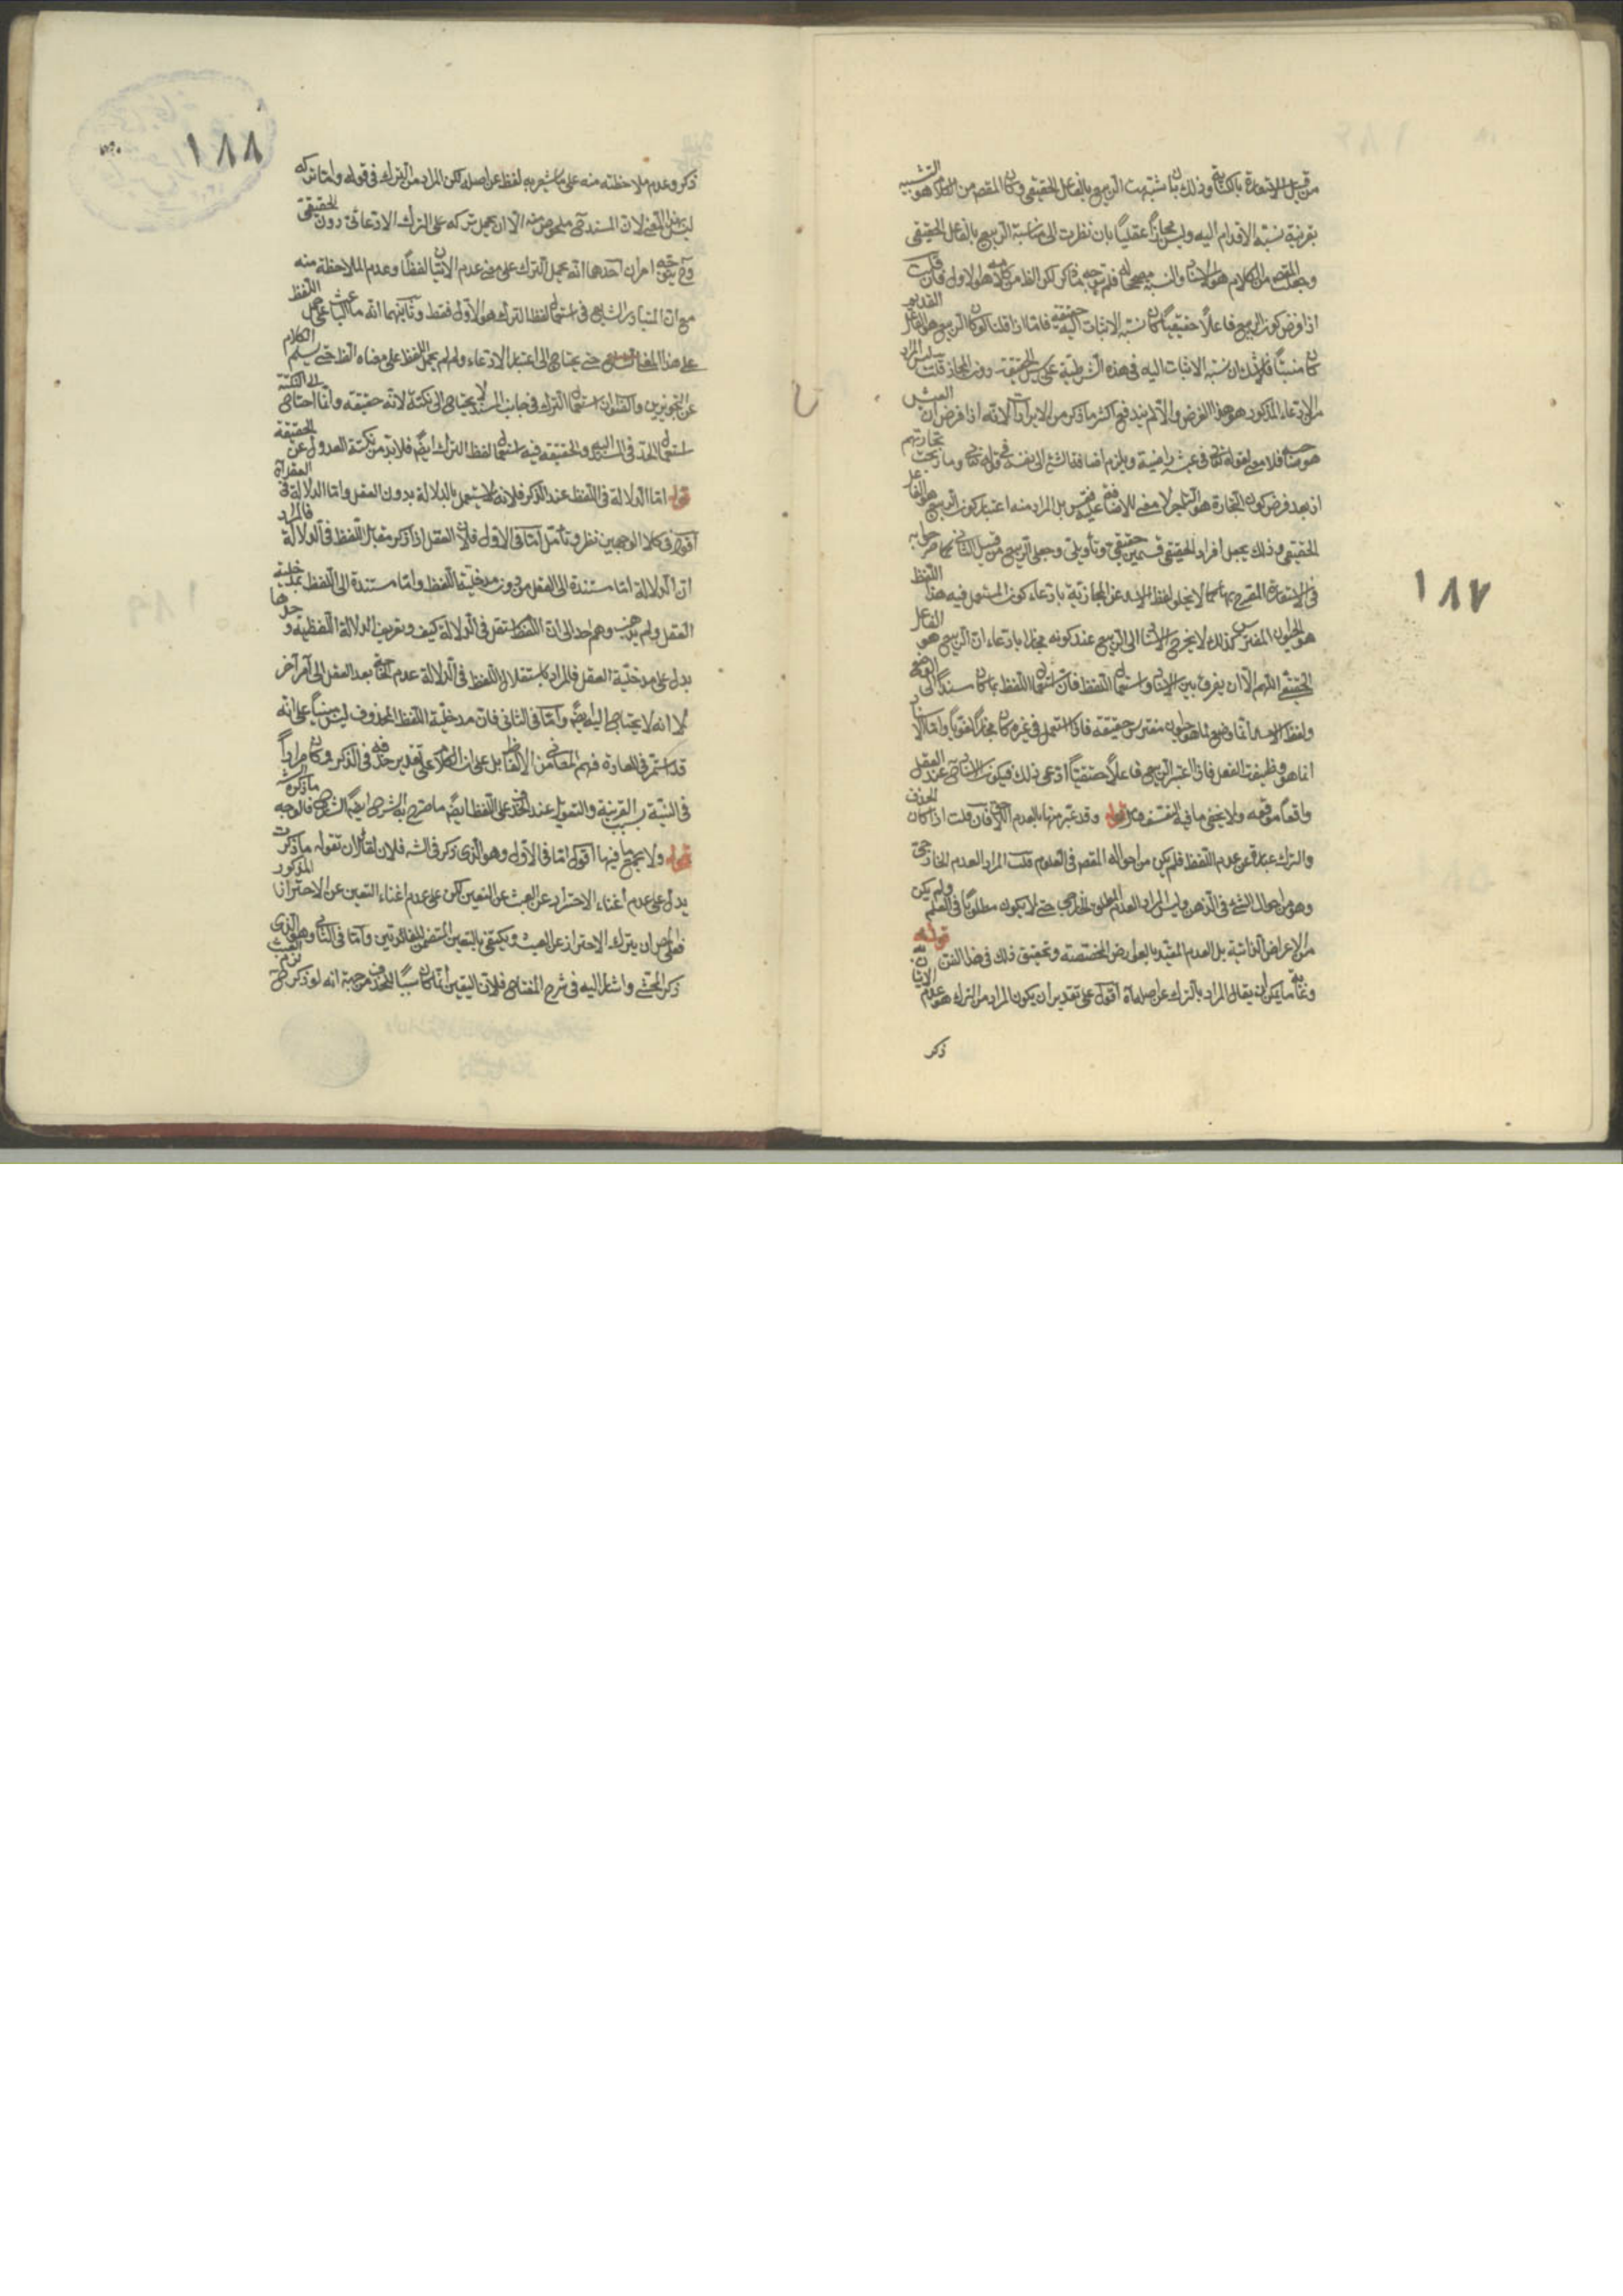 من قبيل الاستعارة بالكناية وذلك بان شبهت الربيع بالفاعل الحقيقي وكان المقصر من الكلام هو التشبيه
بقرينة نسبة الاقدام اليه وليس مجازاً عقلياً بان نظرت الى مناسبة الربيع بالفاعل الحقيقي
وجعلت المقصر من الكلام هو الاثبات
اذا فرض كون الربيع فاعلاً حقيقياً كان نسبة الاثبات اليه حقيقة فامّا اذا قلنا لو كان الربيع هو الفاعل القديم
كان منبتاً فلا شك ان نسبة الاثبات اليه في هذه الشرطية على سبيل الحقيقة دون المجاز قلت ليس المراد
من الادعاء المذكور هو هذا الفرض والّا لم يندفع اكثر ما ذكر من الايرادات لانه اذا فرض ان العيش
هو صاحب فلا معنى لقوله تعالى في عيشة راضية ويلزم اضافة الشئ الى نفسه في قوله تعالى وما ربحت تجارتهم
اذ بعد فرض كون التجارة هو التاجر لا معنى للاضافة فقس عليه بل المراد منه اعتبار كون الربيع هو الفاعل
الحقيقي وذلك بجعل افراد الحقيقي قسمين حقيقي وتأويلي وجعل الربيع من قبيل الثاني كما صرحوا به
في الاستعارة المصرح بها كما لا يخلو لفظ الاسد عن المجازية بادعاء كون المستعمل فيه هذا اللفظ
هو الحيوان المفترس كذلك لا يخرج الاثبات الى الربيع عند كونه مجازا بادعاء ان الربيع هو الفاعل
الحقيقي اللهم الّا ان يفرق بين الاثبات واستعمال اللفظ فان استعمال اللفظ بما كان مستنداً الى الوضع
ولفظ الاسد انما وضع لما هو حيوان مفترس حقيقة فاذا استعمل في غيره كان مجازاً لغوياً وامّا الاسناد
انما هو وظيفة العقل فاذا اعتبر الربيع فاعلاً حقيقياً ادعى ذلك فيكون الاثبات عند العقل
واقعاً موقعه ولا يخفى ما فيه من التعسف فتأمل قوله وقد عبّر منها بالعدم الخ فان قلت اذا كان الحذف
والترك عبارة عن عدم اللفظ فلم يكن من احواله المقصر في العلوم قلت المراد العدم الخارجى
وهو من احوال الشئ في الذهن وليس المراد العدم المطلق الخارجي حتى لا يكون مطلوباً في العلم ولم يكن
من الاعراض الذاتية بل العدم المقيد بالعوارض المختصة وتحقيق ذلك في هذا الفن قوله
وغاية ما يمكن ان يقال المراد بالترك عن اصله اه اقول على تقدير ان يكون المراد من الترك هو عدم الاتيان به
ذكر
١٨٧
١٨٨
ذكر وعدم ملاحظته منه على ما يشعر به لفظ عن اصله لكن المراد من الترك في قوله وامّا تركه
ليس هذا المعنى لان المسند ثمّ ملحوظ منه الّا ان يحمل تركه على الترك الادعائى دون الحقيقى
وح يتوجه امران احدهما انه يحمل الترك على معنى عدم الاتيان لفظاً وعدم الملاحظة منه
مع ان المتبادر الشايع في استعمال لفظ الترك هو الاول فقط وثانيهما انه ما الباعث على حمل اللفظ
على هذا المعنى حتى يحتاج الى اعتبار الادعاء ولم لم يحمل اللفظ على معناه الظ حتى يسلم الكلام
عن التجوزين والقول ان استعمال الترك في جانب المسند لا يحتاج الى نكتة لانه حقيقة وانما احتاج الى النكتة
استعمال الحذف في المسند اليه والحقيقة فيه استعمال لفظ الترك ايضً فلابد من نكتة العدول عن الحقيقة
قوله امّا الدلالة في اللفظ عند الذكر فلانه لا يستعمل بالدلالة بدون العقل وامّا الدلالة في العقل آه
اقول في كلا الوجهين نظر وتأمل امّا في الاول فلان العقل اذا ذكر مقابل اللفظ في الدلالة فالمراد
ان الدلالة امّا مستندة الى العقل من دون مدخلية اللفظ وامّا مستندة الى اللفظ بمدخلية
العقل ولم يذهب وهم احد الى ان اللفظ مستقل في الدلالة كيف وتعريف الدلالة اللفظية وحدها
يدل على مدخلية العقل فالمراد باستقلال اللفظ في الدلالة عدم احتياجه بعد العقل الى امر آخر
لا انه لا يحتاج اليه ايضً وامّا في الثاني فان مدخلية اللفظ المحذوف ليس مبنياً على انه
قد استمر في العادة فهم المعاني من الالفاظ بل على ان الكلام على تقدير حذفه في الذكر وكان مراداً
في النية بسبب القرينة والتعويل عند الحذف على اللفظ ايضً ما صرح به الشرح ايضً فالوجه ما ذكره الش
قوله ولا يجمع فيها اقول امّا في الاول وهو الذى ذكر في الشه فلان لقائل ان يقول ما ذكرت
يدل على عدم اغناء الاحتراز عن العبث عن التعيين لكن على عدم اغناء التعيين عن الاحتراز المذكور
فعلى هذا ان يترك الاحتراز عن العبث ويكتفى بالتعيين المتضمن للفائدتين وامّا في الثاني وهو الذى
ذكر المحشى واشار اليه في شرح المفتاح فلان التعيين انما كان سبباً للحذف من جهة انه لو ذكر لزم العبث